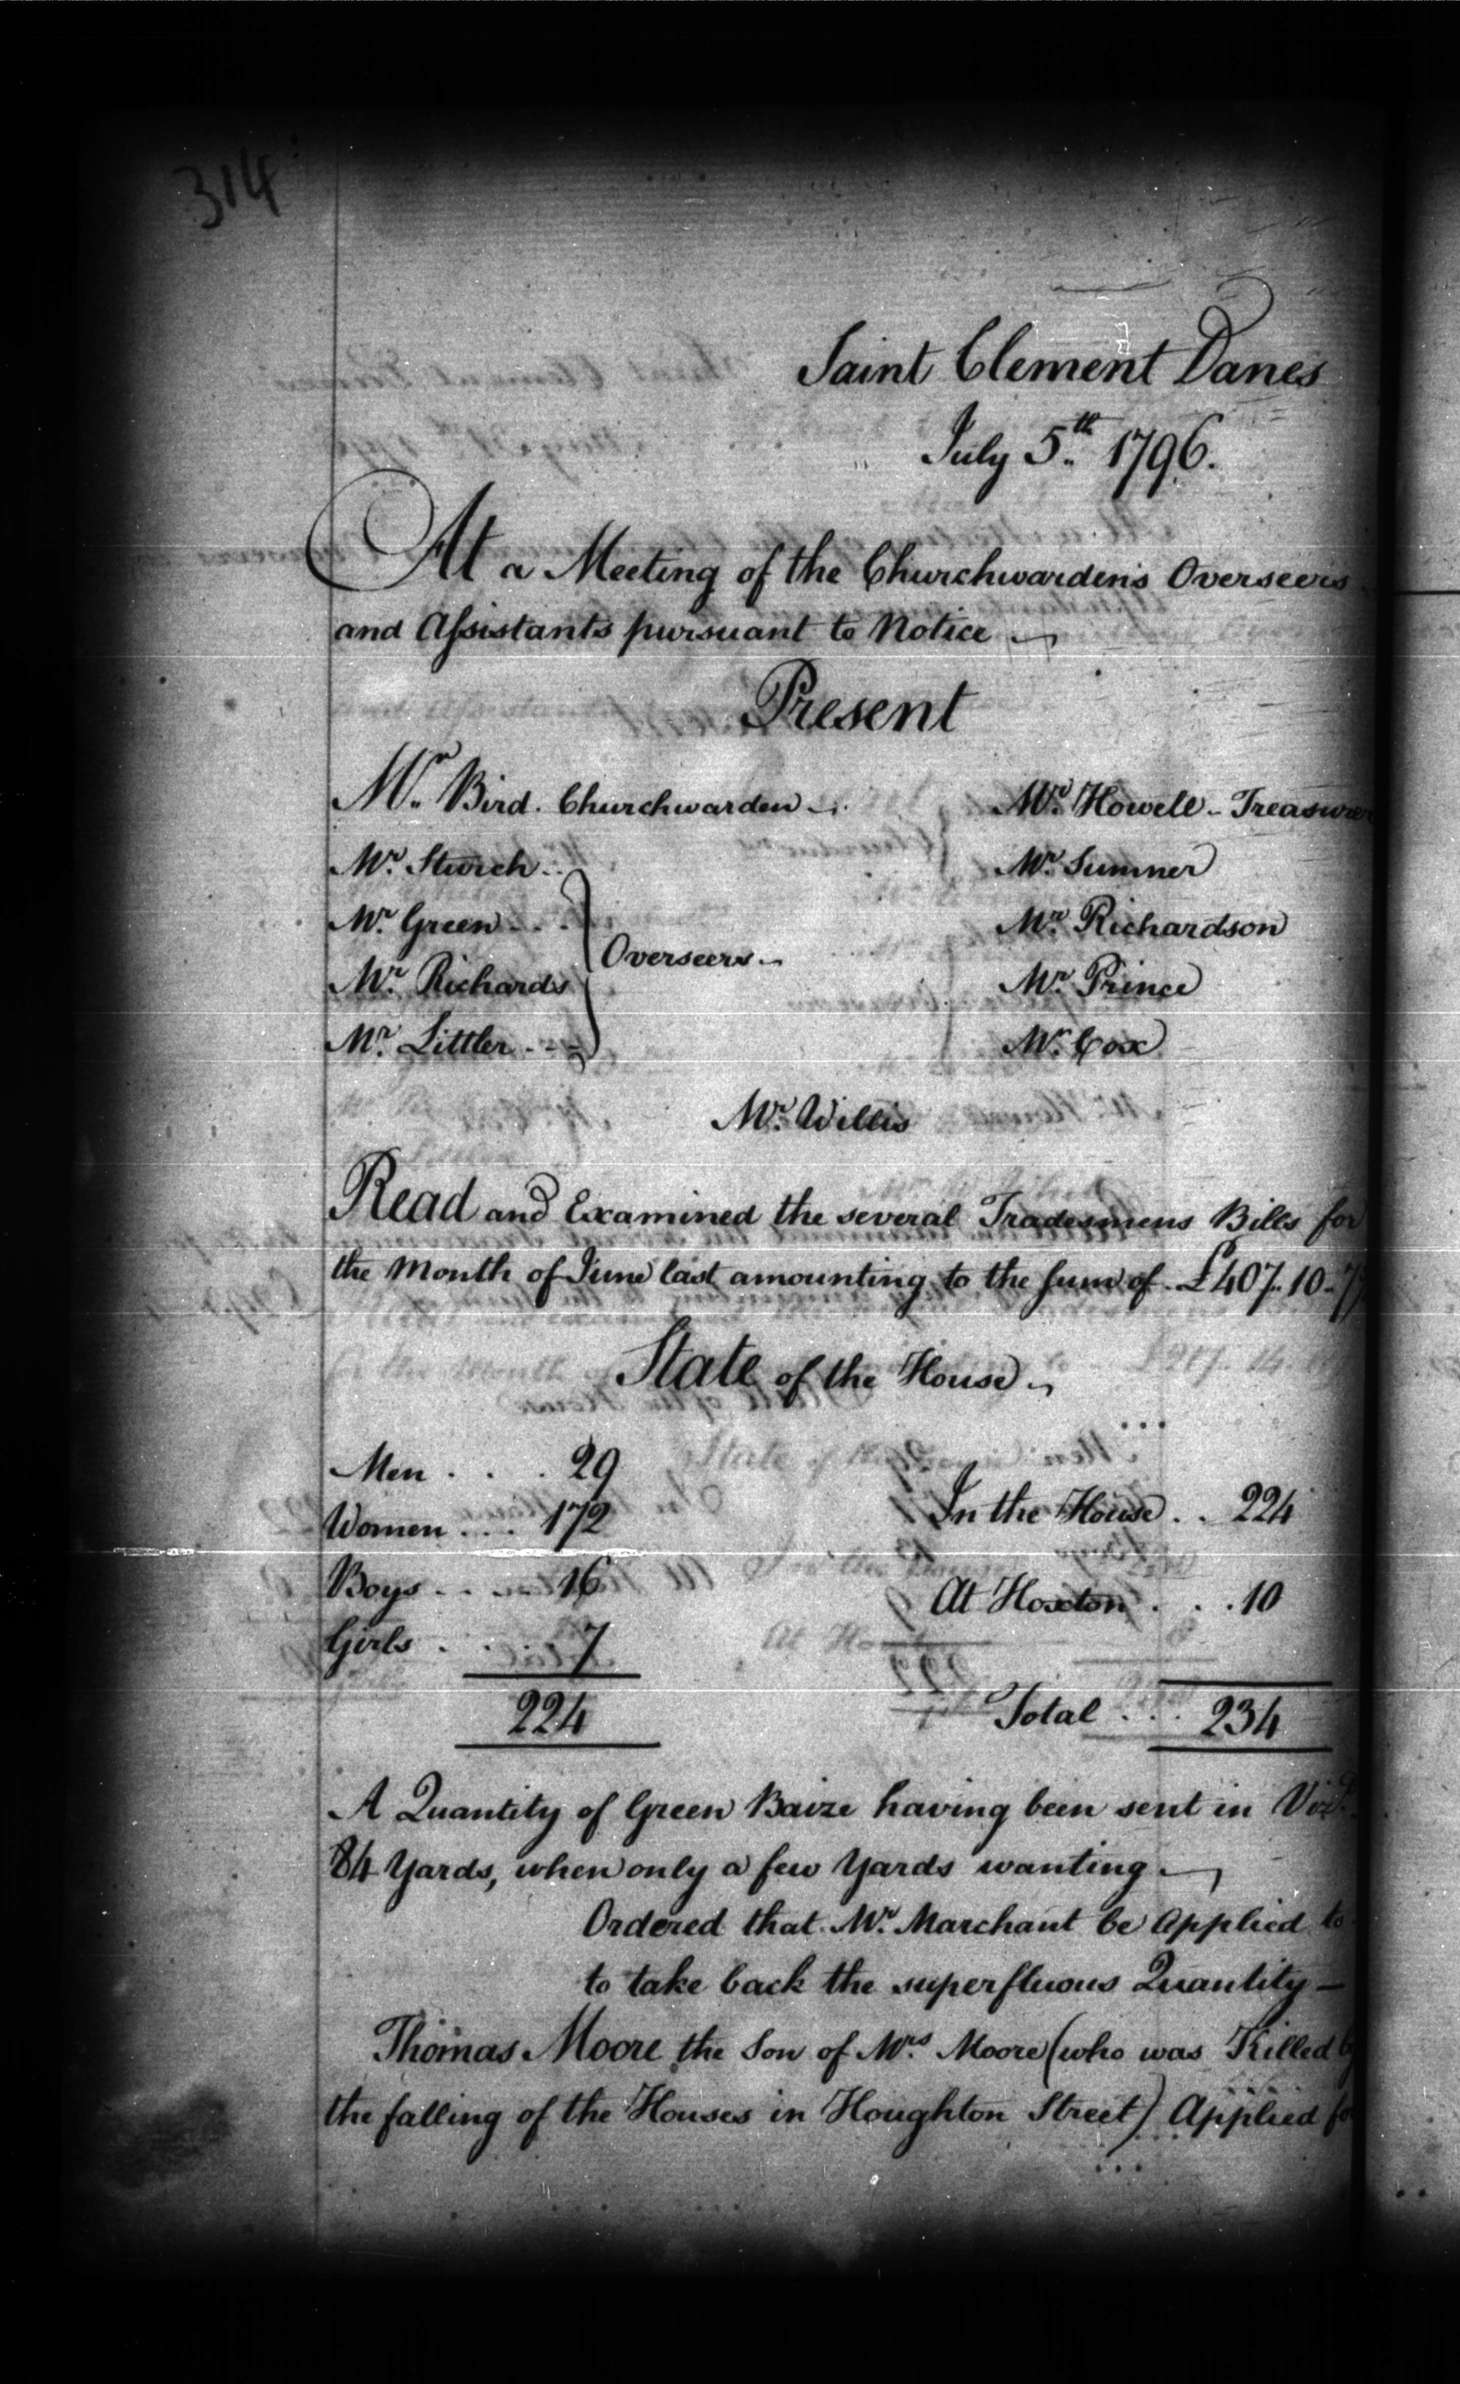 314
Saint Clement Danes
July 5th 1796.
At a Meeting of the Churchwardens Overseers
and Assistants pursuant to Notice
Present
Mr. Bird. Churchwarden
Mr. Howell - Treasurer
Mr. Sturch
Mr. Sumner
Mr. Green
Mr. Richardson
Overseers
Mr. Richards
Mr. Prince
Mr. Littler
Mr. Cox
Mr. Willis
Read and Examined the several Tradesmens Bills for
the Month of June last amounting to the sum of £407.. 10 - 7
State of the House
Men . . . 29
In the House . . 224
Women . . . 172
Boys . . . 16
At Hoxton . . . 10
Girls . . . 7
224
Total . . . 234
A Quantity of Green Baize having been sent in Vizt.
84 Yards, when only a few Yards wanting
Ordered that Mr. Marchant be Applied to
to take back the superfluous Quantity —
Thomas Moore the Son of Mrs. Moore (who was Killed by
the falling of the Houses in Houghton Street) Applied for